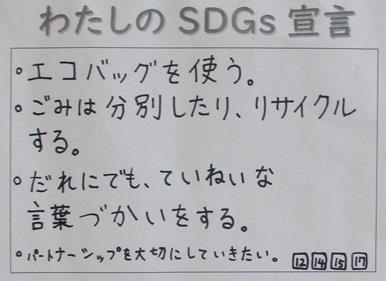 わたしのSDGs宣言
○エコバッグを使う。
○ごみは分別したり、リサイクル
する。
○だれにでも、ていねいな
言葉づかいをする。
○パートナーシップを大切にしていきたい。 12 14 15 17